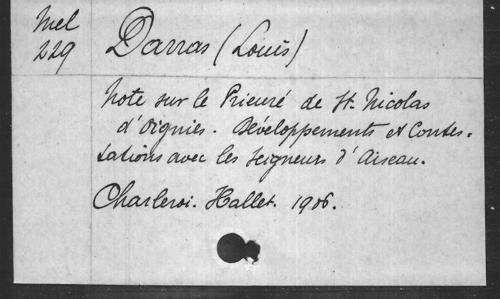 Mel
229
Darras (Louis)
Note sur le Prieuré de St. Nicolas
d'Oignies. Développements et Contes-
tations avec les seigneurs d'Aiseau.
Charleroi. Hallet. 1906.